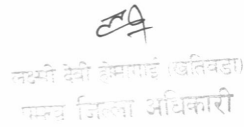 लक्ष्मी देवी हुमागाईं (खतिवडा)
प्रमुख जिल्ला अधिकारी